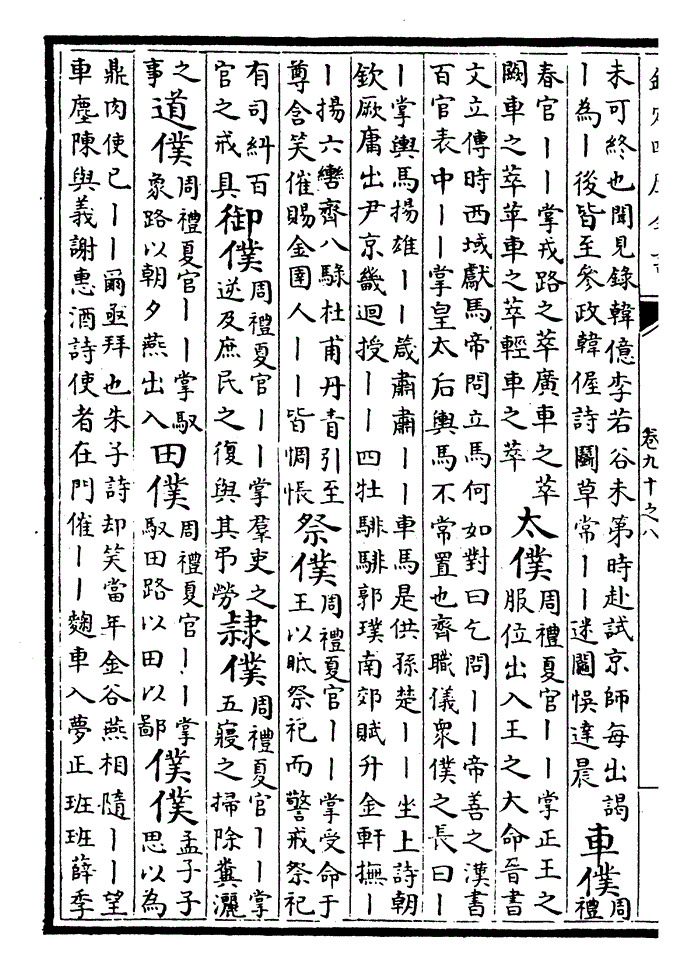 卷九十之八
未可終也聞見錄韓億李若谷未第時赴試京師每出謁
丨為丨後皆至參政韓偓詩鬭草常丨丨迷鬮悞達晨
車僕
周
禮
春官丨丨掌戎路之萃廣車之萃
闕車之萃苹車之萃輕車之萃
太僕
周禮夏官丨丨掌正王之
服位出入王之大命晉書
文立傳時西域獻馬帝問立馬何如對曰乞問丨丨帝善之漢書
百官表中丨丨掌皇太后輿馬不常置也齊職儀衆僕之長曰丨
丨掌輿馬揚雄丨丨箴肅肅丨丨車馬是供孫楚丨丨坐上詩朝
欽厥庸出尹京畿迴授丨丨四牡騑騑郭璞南郊賦升金軒撫丨
丨揚六轡齊八騄杜甫丹青引至
尊含笑催賜金圉人丨丨皆惆悵
祭僕
周禮夏官丨丨掌受命于
王以眂祭祀而警戒祭祀
有司糾百
官之戒具
御僕
周禮夏官丨丨掌羣吏之
逆及庶民之復與其弔勞
隷僕
周禮夏官丨丨掌
五寢之掃除糞灑
之
事
道僕
周禮夏官丨丨掌馭
象路以朝夕燕出入
田僕
周禮夏官丨丨掌
馭田路以田以鄙
僕僕
孟子子
思以為
鼎肉使已丨丨爾亟拜也朱子詩却笑當年金谷燕相隨丨丨望
車塵陳與義謝惠酒詩使者在門催丨丨麴車入夢正班班薛季